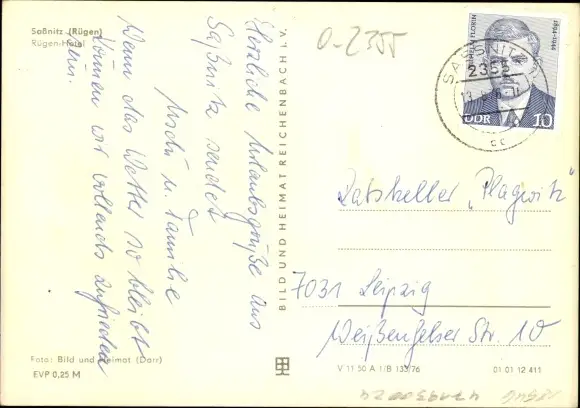 Saßnitz (Rügen)
Rügen-Hotel
Herzliche Urlaubsgrüße aus
Saßnitz sendet
u. Familie
Wenn das Wetter so bleibt
können wir vollends zufrieden
sein.
Foto: Bild und Heimat (Darr)
EVP 0,25 M
BILD UND HEIMAT REICHENBACH i. V.
0-2355
WILHELM FLORIN
1894-1944
DDR 10
SASSNITZ
2355
cc
Ratskeller „Plagwitz"
7031 Leipzig
Weißenfelser Str. 10
V 11 50 A 1/B 133/76
01 01 12 411